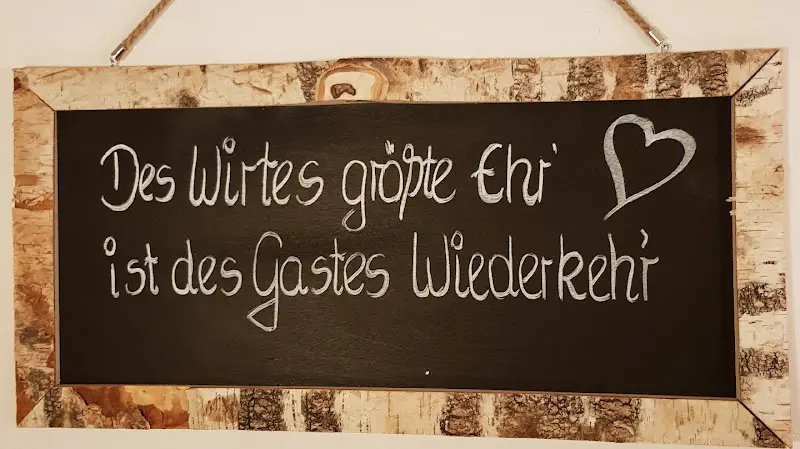 Des Wirtes größte Ehr'
ist des Gastes Wiederkehr